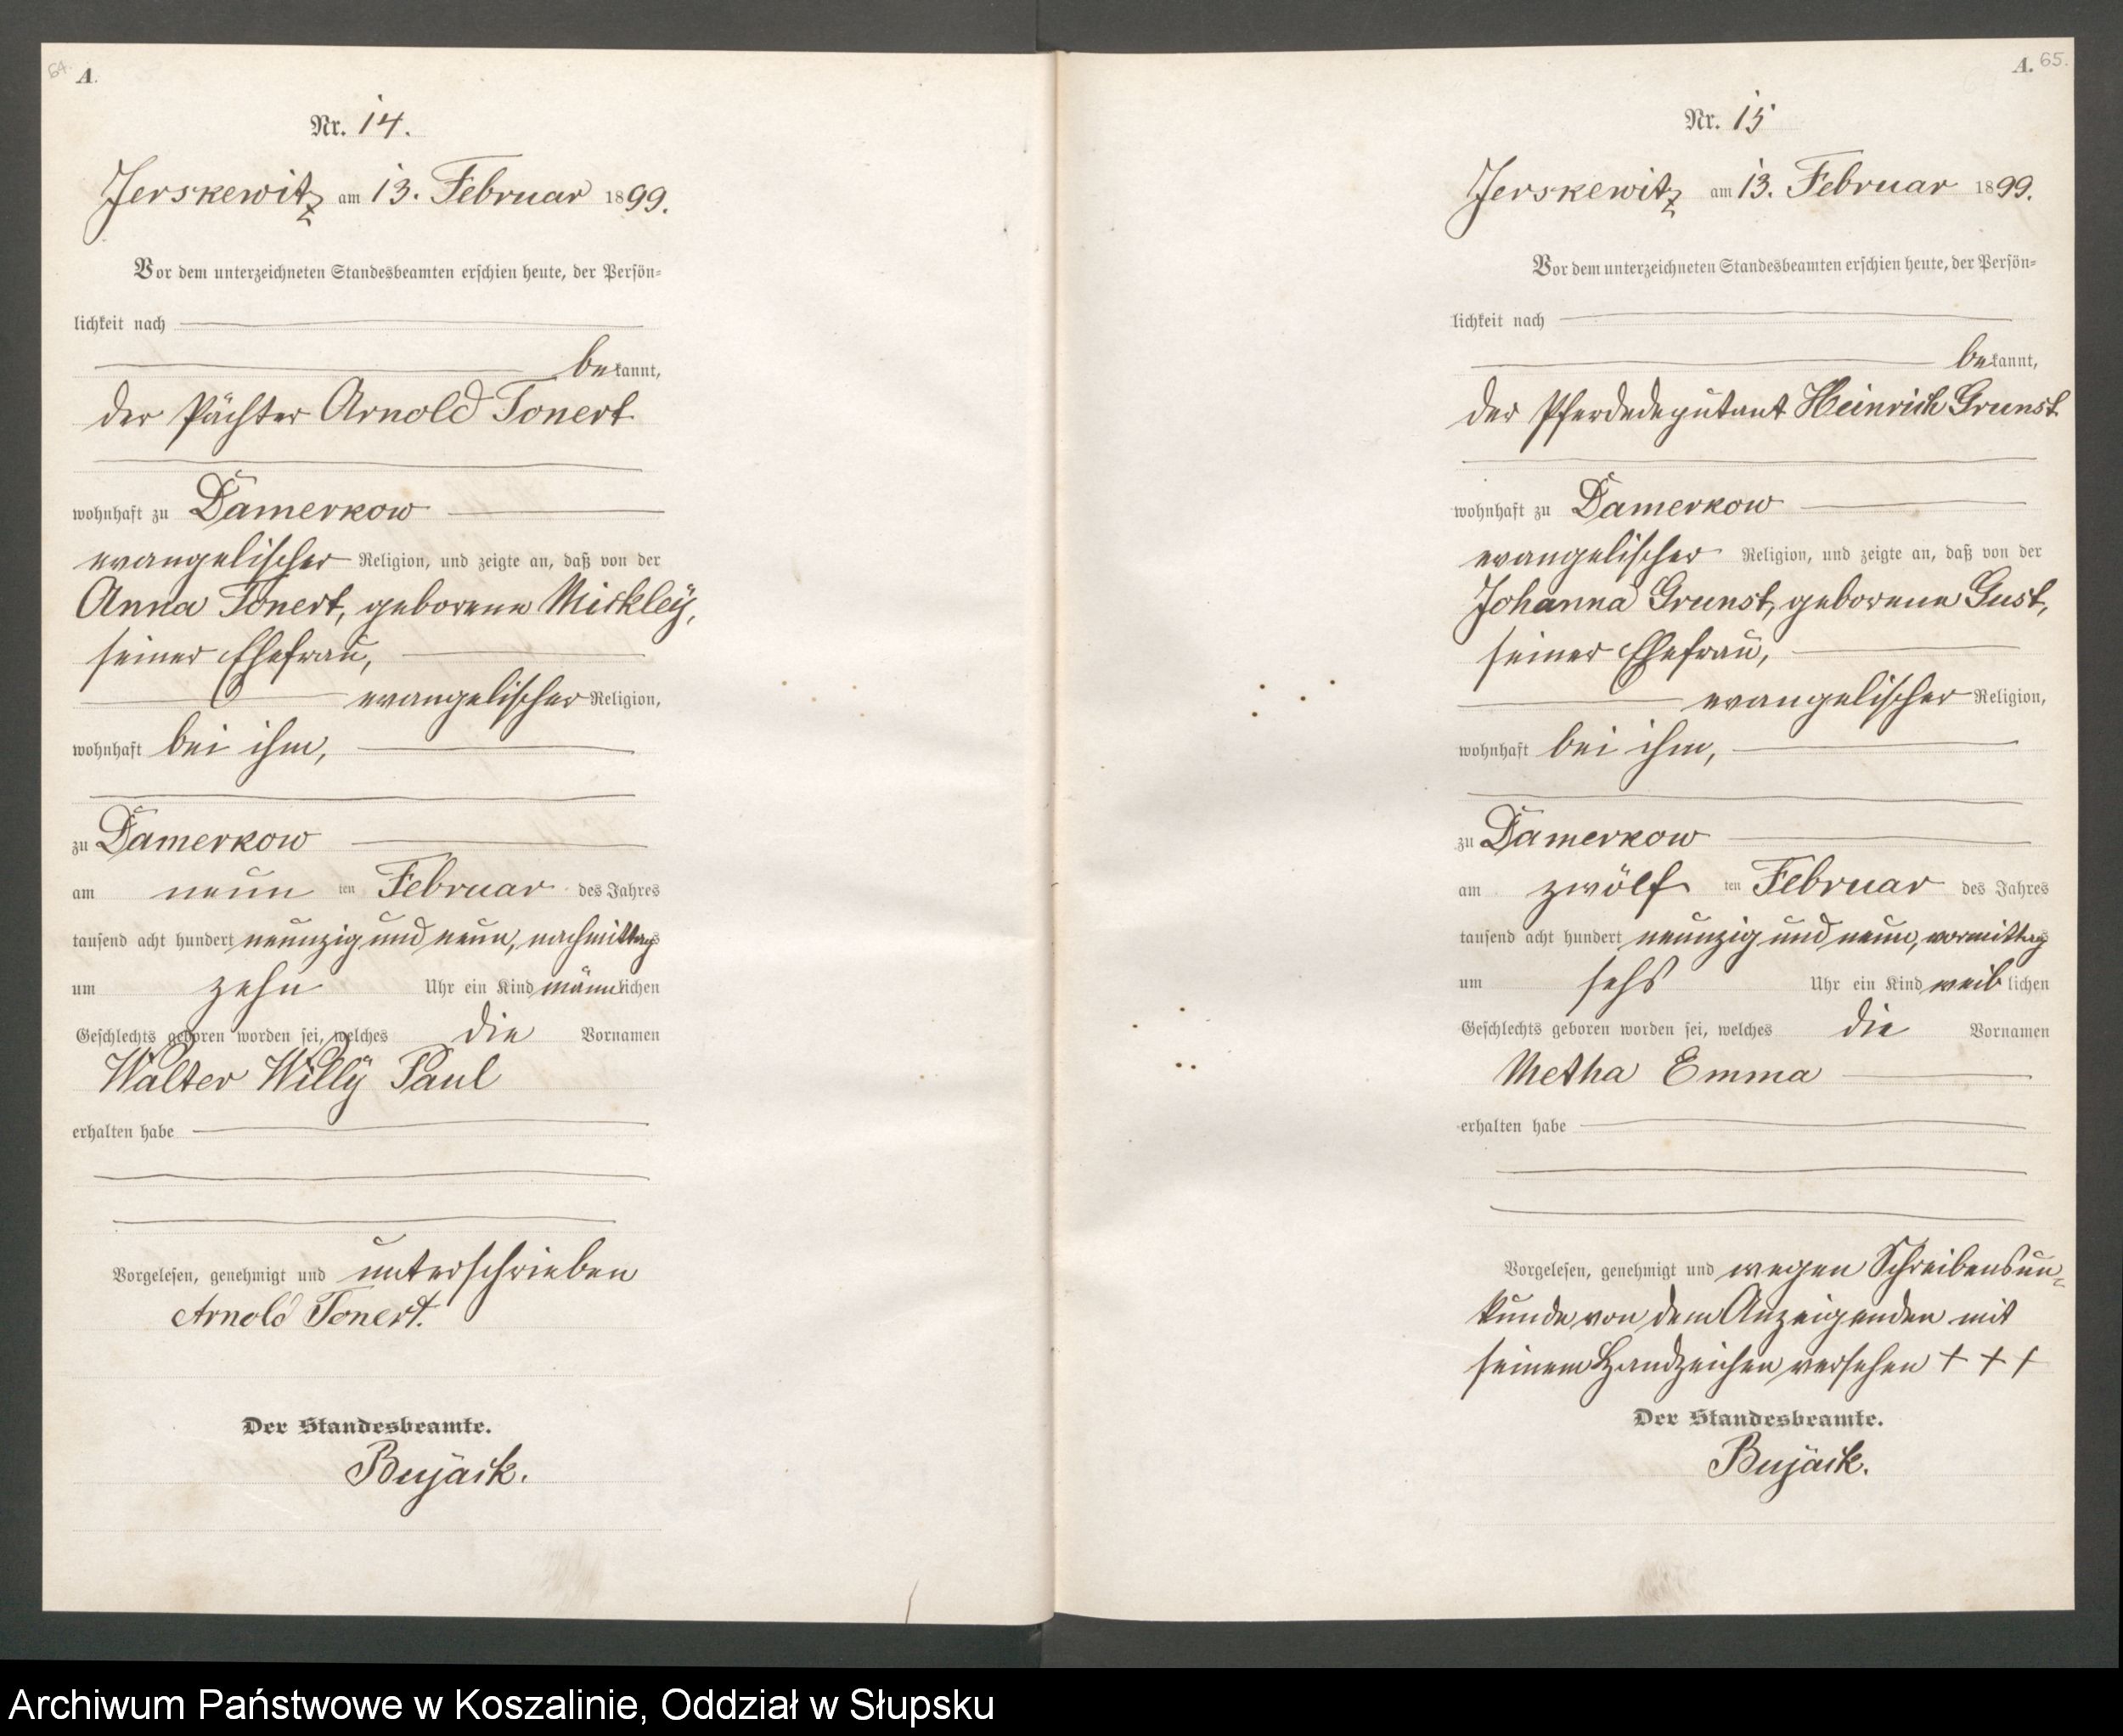 64.
A.
Nr. 14.
Jerskewitz am 13. Februar 1899.
Vor dem unterzeichneten Standesbeamten erschien heute, der Persön-
lichkeit nach
bekannt,
der Pächter Arnold Tonert
wohnhaft zu Damerkow
evangelischer Religion, und zeigte an, daß von der
Anna Tonert, geborene Mickley,
seiner Ehefrau,
evangelischer Religion,
wohnhaft bei ihm,
zu Damerkow
am neun ten Februar des Jahres
tausend acht hundert neunzig und neun, nachmittags
um zehn Uhr ein Kind männlichen
Geschlechts geboren worden sei, welches die Vornamen
Walter Willy Paul
erhalten habe
Vorgelesen, genehmigt und unterschrieben
Arnold Tonert.
Der Standesbeamte.
Bujack.
A. 65.
Nr. 15
Jerskewitz am 13. Februar 1899.
Vor dem unterzeichneten Standesbeamten erschien heute, der Persön-
lichkeit nach
bekannt,
der Pferdedeputant Heinrich Grunst
wohnhaft zu Damerkow
evangelischer Religion, und zeigte an, daß von der
Johanna Grunst, geborene Gust,
seiner Ehefrau,
evangelischer Religion,
wohnhaft bei ihm,
zu Damerkow
am zwölf ten Februar des Jahres
tausend acht hundert neunzig und neun, vormittags
um sehs Uhr ein Kind weiblichen
Geschlechts geboren worden sei, welches die Vornamen
Metha Emma
erhalten habe
Vorgelesen, genehmigt und wegen Schreibensun-
kunde von dem Anzeigenden mit
seinem Handzeichen versehen + + +
Der Standesbeamte.
Bujack.
Archiwum Państwowe w Koszalinie, Oddział w Słupsku